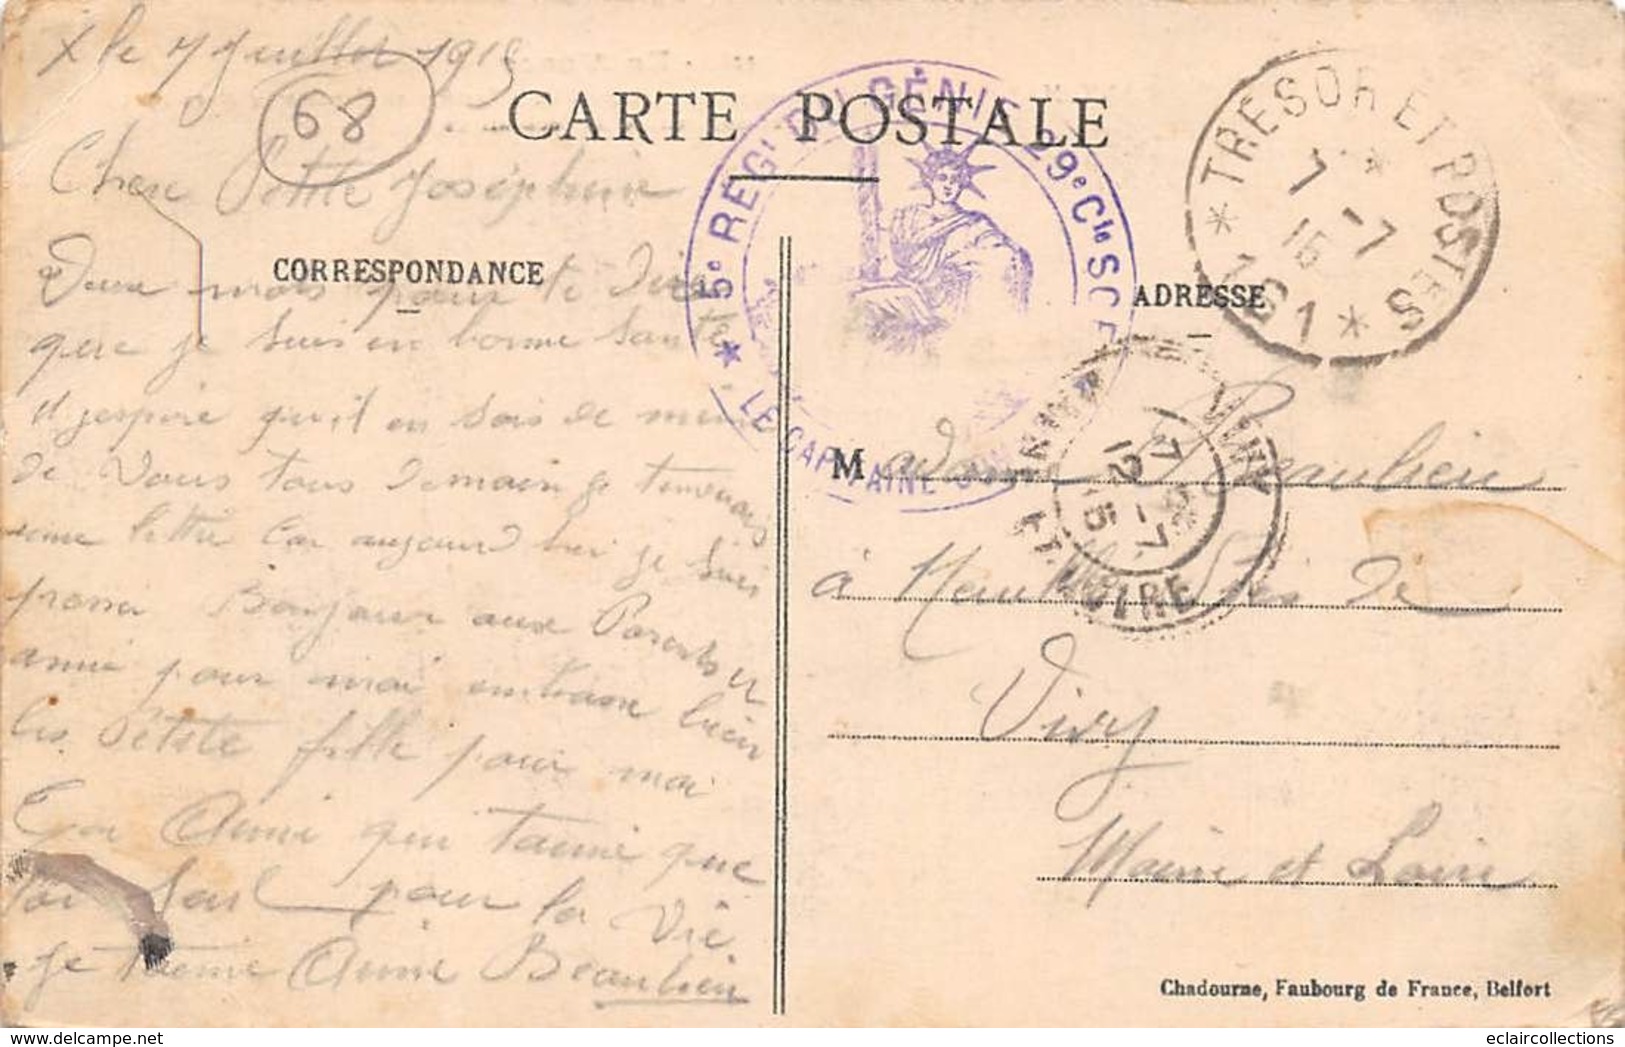 X le 7 Juillet 1915
68
CARTE POSTALE
5e RÉGt DU GÉNIE 29e Cie
LE CAPITAINE
TRESOR ET POSTES
7 -7
15
161
Chere Petite Joséphine
CORRESPONDANCE
ADRESSE
Deux mots pour te dire
que je suis en bonne santé
et jespère qu'il en sois de meme
de Vous tous Demain je tenverais
une lettre Car aujourd hui je suis
pressé Bonjour aux Parents et
amie pour moi embrasse bien
les Petite fille pour moi
Ton Aimé qui taime que
toi seul pour la Vie
Je taime Aimé Beaulieu
VIHY
17
7-7
12
15
MAINE ET LOIRE
Madame Beaulieu
à près de
Vivy
Maine et Loire
Chadourne, Faubourg de France, Belfort
eclaircollections